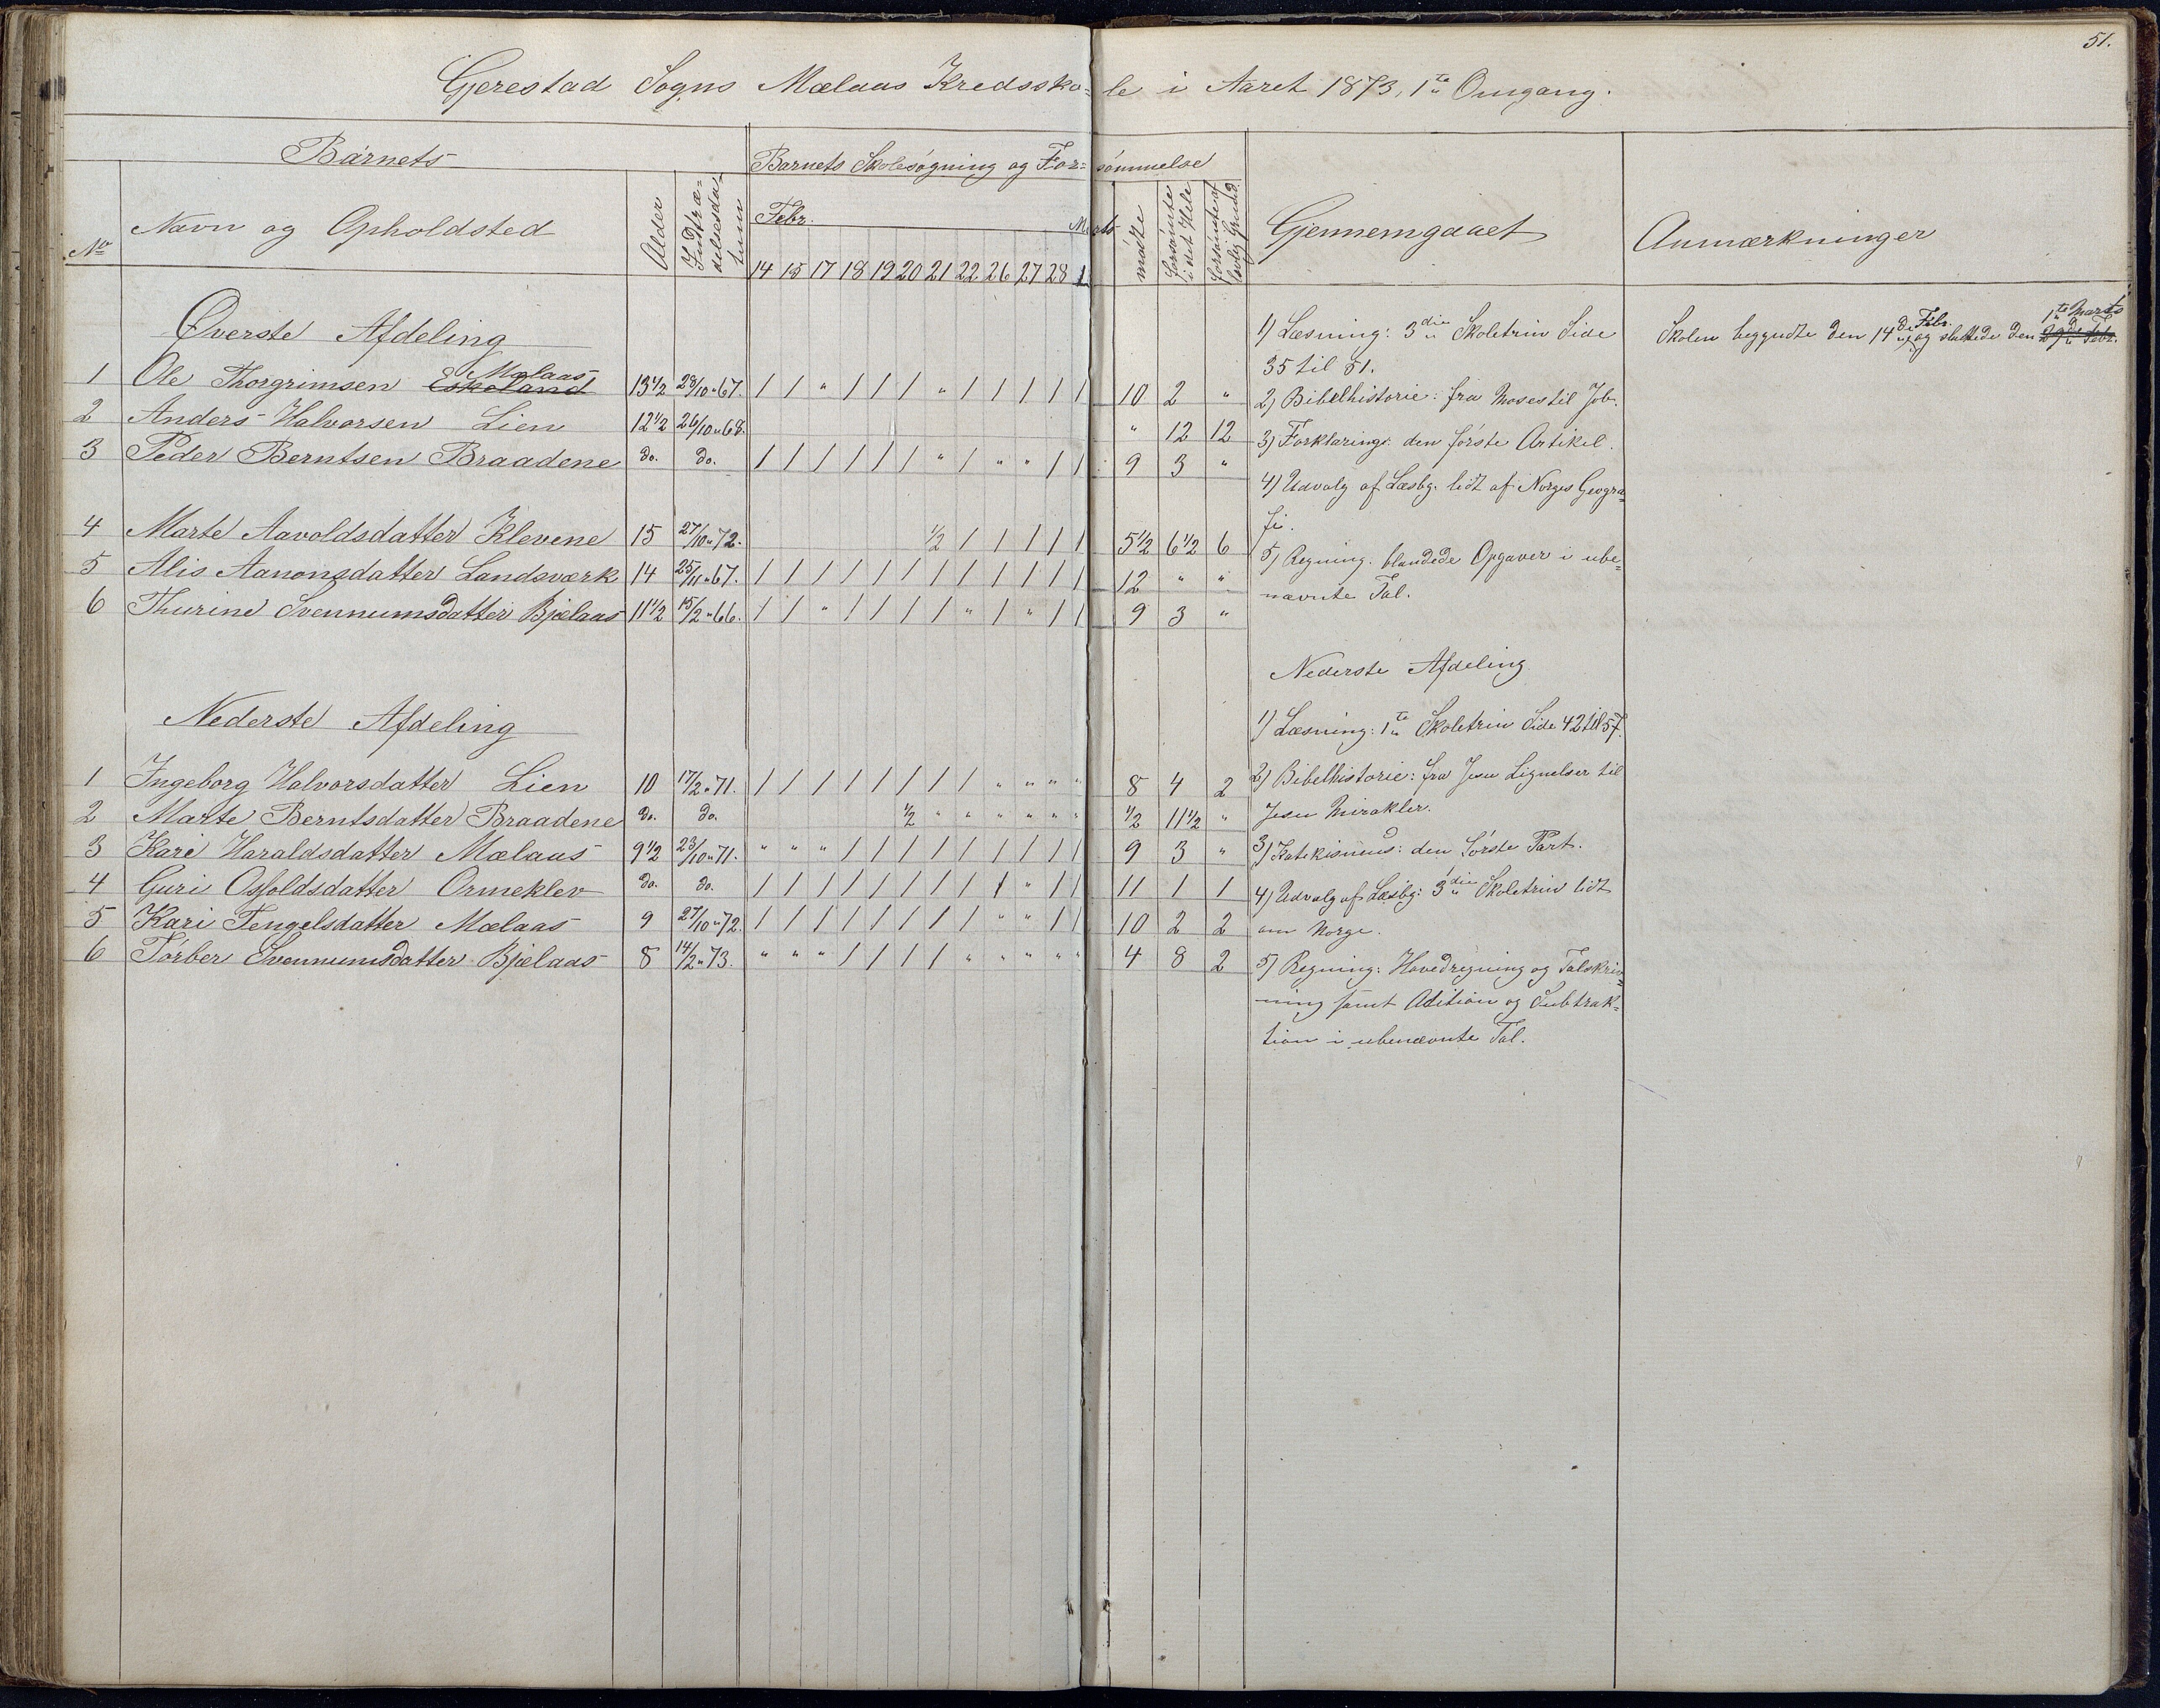 51.
Gjerestad Sogns Mælaas Kredssko=le i Aaret 1873, 1te Omgang.
Barnets
Barnets Skolesøgning og For=sømmelse
No
Navn og Opholdsted
Alder
Indtræ=
delsesda=
tum
Febr. Marts
14 15 17 18 19 20 21 22 26 27 28 1
mødte
forsømte
i det Hele
forsømte af
lovlig Grund
Gjennemgaaet
Anmærkninger
Øverste Afdeling
1 Ole Thorgrimsen Eskeland Mælaas 13 1/2 28/10 " 67. / / " / / / " / / / / / 10 2 "
2 Anders Halvorsen Lien 12 1/2 26/10 " 68. " 12 12
3 Peder Berntsen Braadene do. do. / / / / / / " / " " / / 9 3 "
4 Marte Aavoldsdatter Klevene 15 27/10 " 72. 1/2 / / / / / 5 1/2 6 1/2 6
5 Alis Aanonsdatter Landsværk 14 25/11 " 67. / / / / / / / / / / / / 12 " "
6 Thurine Svennumsdatter Bjelaas 11 1/2 15/2 " 66. / / " / / / / " / " / / 9 3 "
Nederste Afdeling
1 Ingeborg Halvorsdatter Lien 10 17/2 " 71. / / / / / / / / " " " " 8 4 2
2 Marte Berntsdatter Braadene do. do. 1/2 " " " " " " 1/2 11 1/2 "
3 Kari Haraldsdatter Mælaas 9 1/2 23/10 " 71. " " " / / / / / / / / / 9 3 "
4 Guri Osfoldsdatter Ormeklev do. do. / / / / / / / / / " / / 11 1 1
5 Kari Tengelsdatter Mælaas 9 27/10 " 72. / / / / / / / / " " / / 10 2 2
6 Tørber Svennumsdatter Bjelaas 8 14/2 " 73. " " " / / / / " " " " " 4 8 2
1) Læsning: 3die Skoletrin Side
35 til 51.
2) Bibelhistorie: fra Moses til Job.
3) Forklaring: den første Artikel.
4) Udvalg af Læsbg. lidt af Norges Geogra=
fi.
5) Regning. blandede Opgaver i ube=
nævnte Tal.
Nederste Afdeling
1) Læsning: 1te Skoletrin Side 42 til 57.
2) Bibelhistorie: fra Jesu Lignelser til
Jesu Mirakler.
3) Katekismus: den første Part.
4) Udvalg af Læsbg: 3die Skoletrin lidt
om Norge.
5) Regning: Hovedregning og Talskriv=
ning samt Adition og Subtrak=
tion i ubenævnte Tal.
Skolen begyndte den 14de Febr. og sluttede den 1te Marts